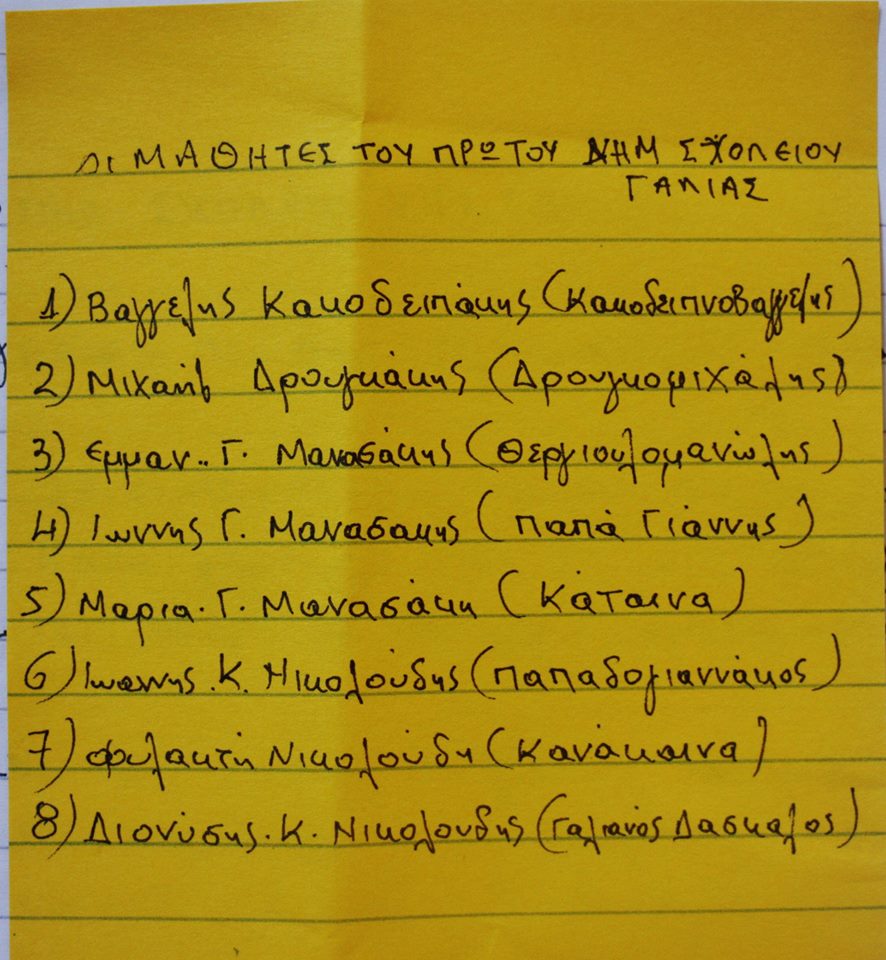 ΟΙ ΜΑΘΗΤΕΣ ΤΟΥ ΠΡΩΤΟΥ ΔΗΜ ΣΧΟΛΕΙΟΥ
ΓΑΛΙΑΣ
1) Βαγγελης Κακοδειπάκης (Κακοδειπνοβαγγελης)
2) Μιχαήλ Δρουγκάκης (Δρουγκομιχάλης)
3) Εμμαν.. Γ. Μανασάκης (Θεργιουλομανώλης)
4) Ιωννης Γ. Μανασακης (παπά Γιάννης)
5) Μαρια. Γ. Μανασάκη (Κάταινα)
6) Ιωαννης. Κ. Νικολούδης (παπαδογιαννάκος)
7) Φυλακτή Νικολούδη (Κανάκαινα)
8) Διονύσης. Κ. Νικολουδης (Γαλιανός Δασκαλος)